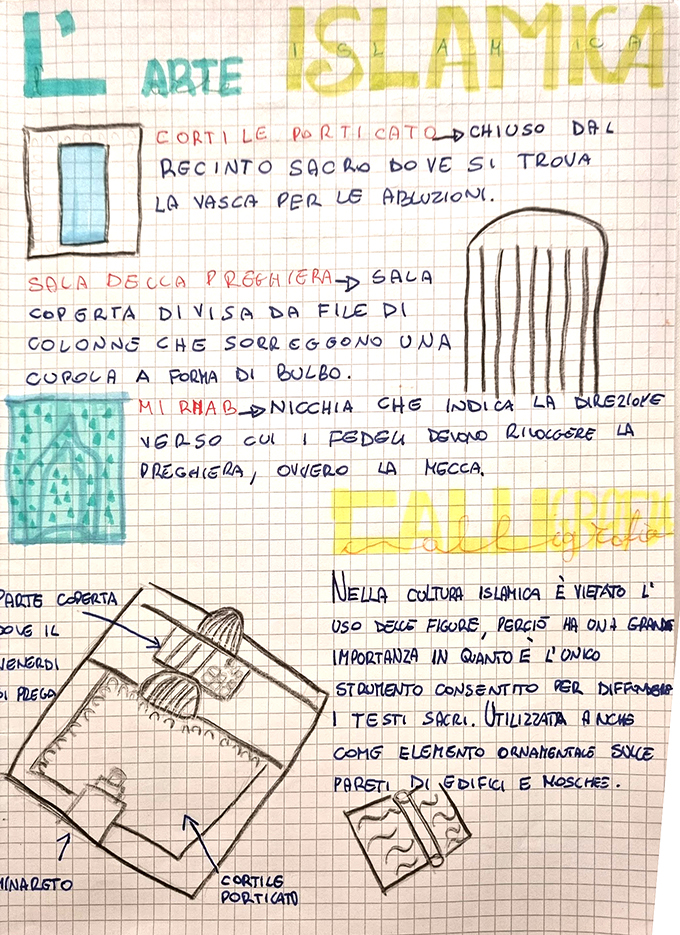 L'ARTE ISLAMICA
CORTILE PORTICATO → CHIUSO DAL
RECINTO SACRO DOVE SI TROVA
LA VASCA PER LE ABLUZIONI.
SALA DELLA PREGHIERA → SALA
COPERTA DIVISA DA FILE DI
COLONNE CHE SORREGGONO UNA
CUPOLA A FORMA DI BULBO.
MIRHAB → NICCHIA CHE INDICA LA DIREZIONE
VERSO CUI I FEDELI DEVONO RIVOLGERE LA
PREGHIERA, OVVERO LA MECCA.
CALLIGRAFIA
calligrafia
NELLA CULTURA ISLAMICA È VIETATO L'
USO DELLE FIGURE, PERCIÒ HA UNA GRANDE
IMPORTANZA IN QUANTO È L'UNICO
STRUMENTO CONSENTITO PER DIFFONDERE
I TESTI SACRI. UTILIZZATA ANCHE
COME ELEMENTO ORNAMENTALE SULLE
PARETI DI EDIFICI E MOSCHEE.
PARTE COPERTA
DOVE IL
VENERDI
SI PREGA
MINARETO
CORTILE
PORTICATO